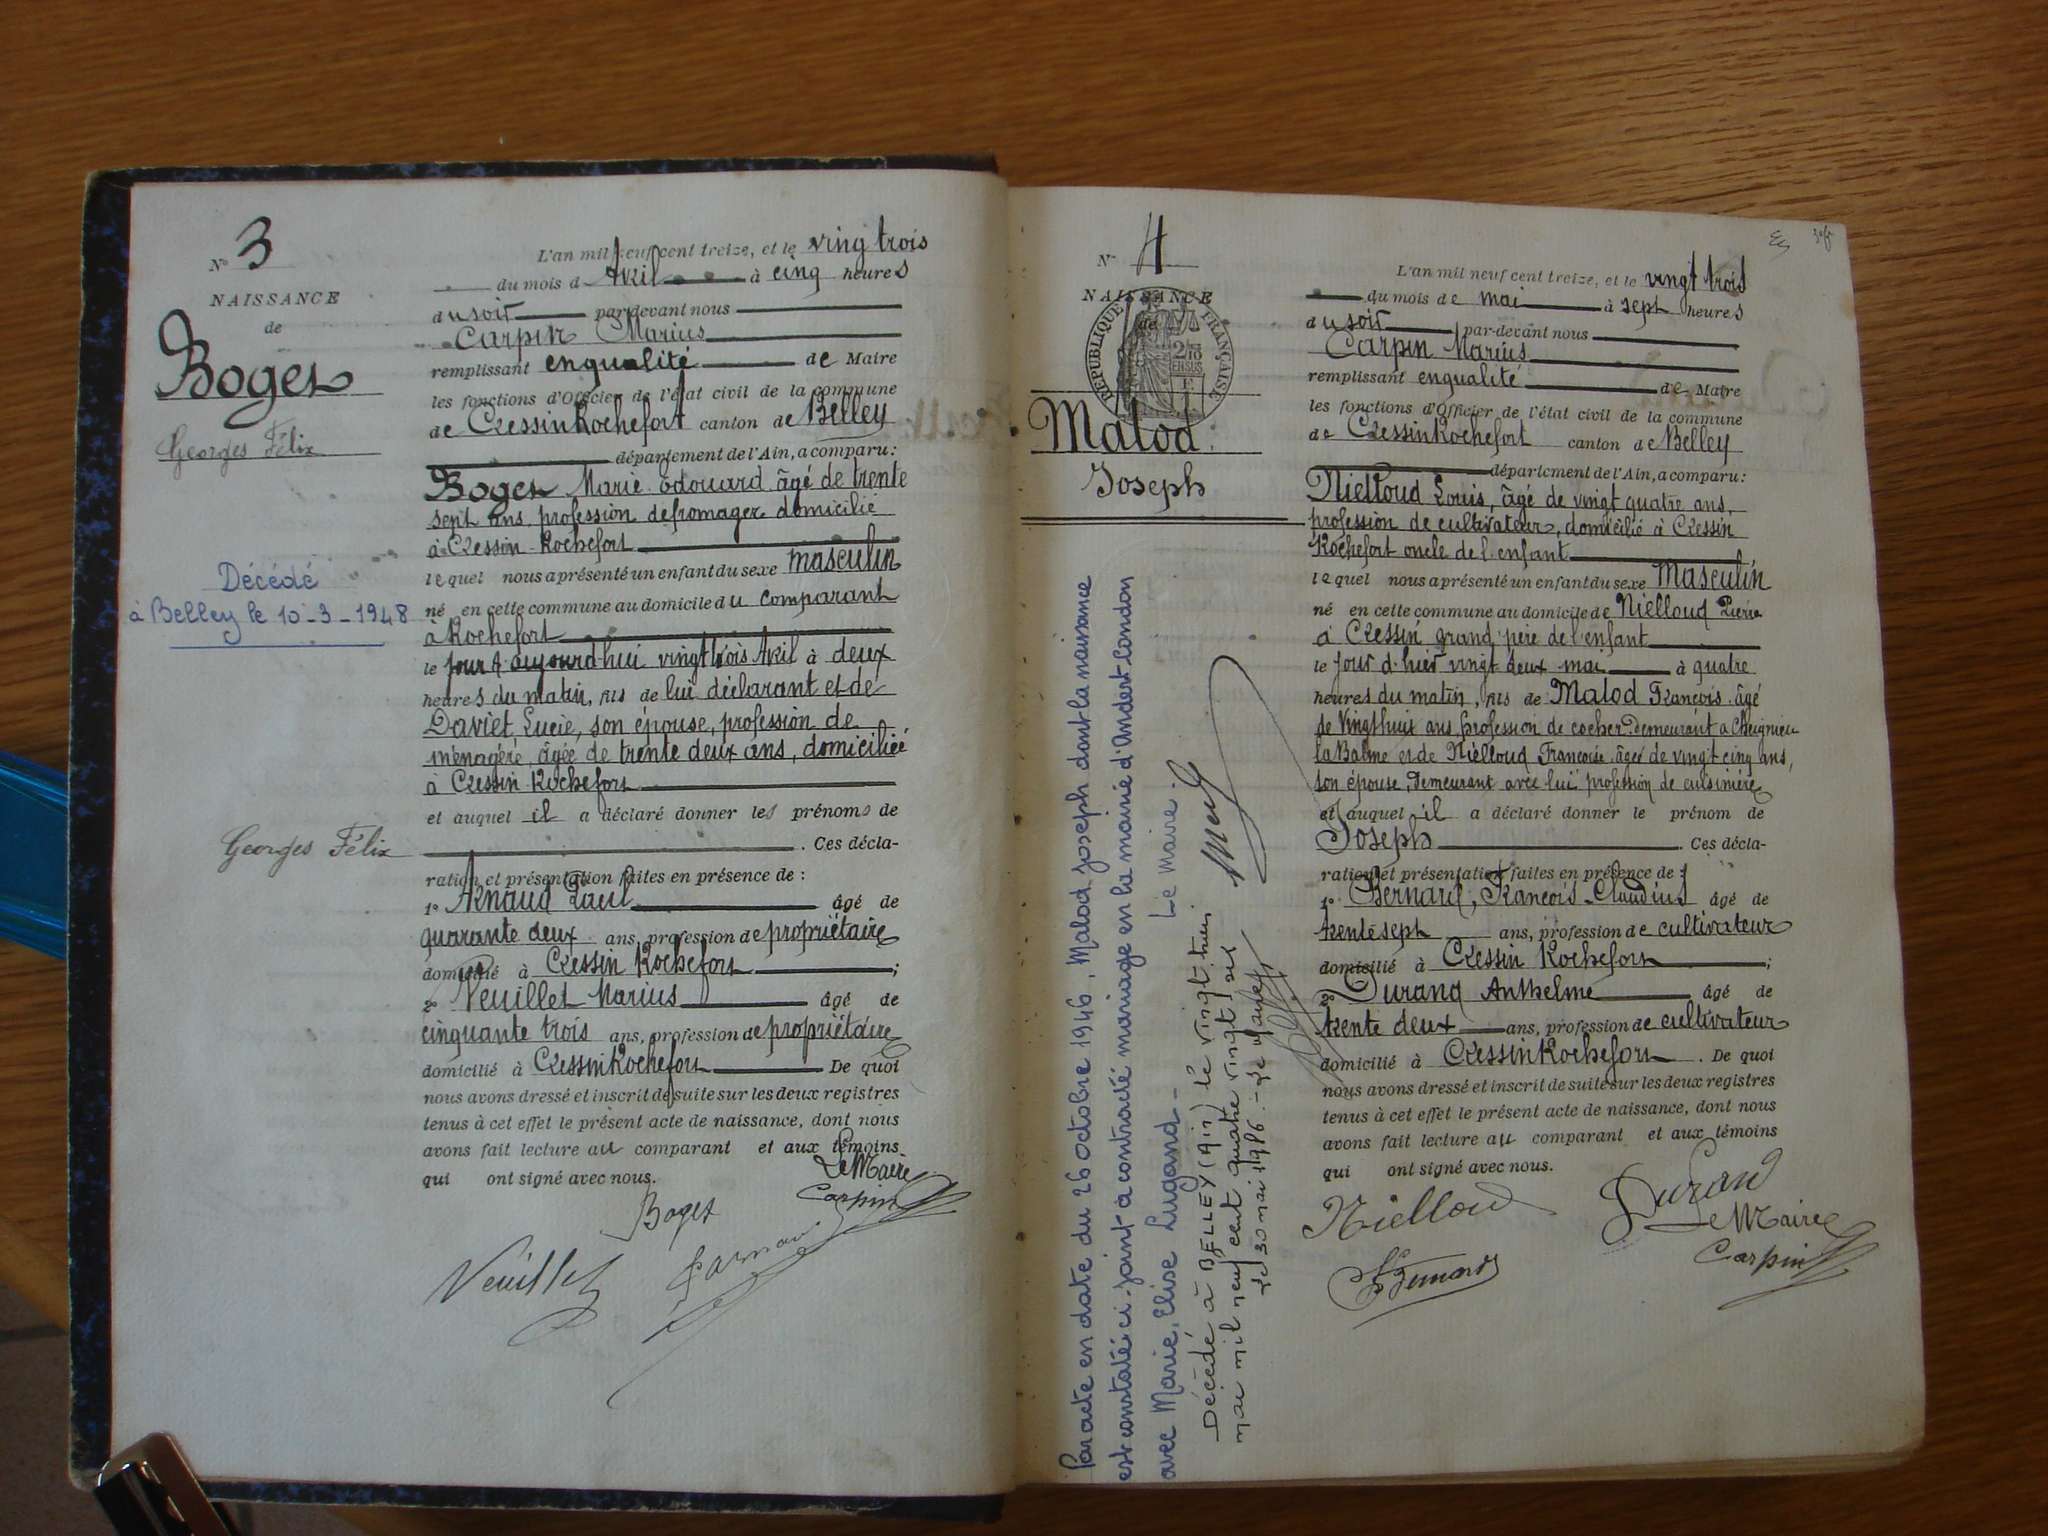 N° 3
NAISSANCE
de
Boges
Georges Félix
Décédé
à Belley le 10-3-1948
Georges Félix
L'an mil neuf cent treize, et le vingt trois
du mois d Avril à cinq heures
du soir par-devant nous
Carpin Marius
remplissant en qualité de Maire
les fonctions d'Officier de l'état civil de la commune
de Cressin Rochefort canton de Belley
département de l'Ain, a comparu:
Boges Marie Edouard âgé de trente
sept ans, profession de fromager domicilié
à Cressin-Rochefort
lequel nous a présenté un enfant du sexe masculin
né en cette commune au domicile du comparant
à Rochefort
le jour d'aujourd'hui vingt trois Avril à deux
heures du matin, fils de lui déclarant et de
Daviet Lucie, son épouse, profession de
ménagère, âgée de trente deux ans, domiciliée
à Cressin-Rochefort
et auquel il a déclaré donner les prénoms de
. Ces décla-
ration et présentation faites en présence de :
1° Arnaud Paul âgé de
quarante deux ans, profession de propriétaire
domicilié à Cressin Rochefort ;
2° Veuillet Marius âgé de
cinquante trois ans, profession de propriétaire
domicilié à Cressin Rochefort De quoi
nous avons dressé et inscrit de suite sur les deux registres
tenus à cet effet le présent acte de naissance, dont nous
avons fait lecture au comparant et aux témoins
qui ont signé avec nous.
Le Maire
Boges Carpin
Veuillet
N° 4
NAISSANCE
de
RÉPUBLIQUE FRANÇAISE
2/10 EN SUS
Malod
Joseph
Par acte en date du 26 octobre 1946, Malod Joseph dont la naissance
est constatée ci-joint a contracté mariage en la mairie d'Andert-Condon
avec Marie, Elise Lugand - Le Maire.
Décédé à BELLEY (Ain) le vingt trois
mai mil neuf cent quatre vingt six
Le 30 mai 1986. - Le Maire,
L'an mil neuf cent treize, et le vingt trois
du mois de mai à sept heures
du soir par-devant nous
Carpin Marius
remplissant en qualité de Maire
les fonctions d'Officier de l'état civil de la commune
de Cressin Rochefort canton de Belley
département de l'Ain, a comparu:
Nielloud Louis, âgé de vingt quatre ans,
profession de cultivateur, domicilié à Cressin
Rochefort oncle de l'enfant
lequel nous a présenté un enfant du sexe Masculin
né en cette commune au domicile de Nielloud Pierre
à Cressin grand'père de l'enfant
le jour d'hier vingt deux mai à quatre
heures du matin, fils de Malod François âgé
de Vingt huit ans profession de cocher Demeurant a Cheignieu
la Balme et de Nielloud Françoise âgée de vingt cinq ans,
son épouse, Demeurant avec lui profession de cuisinière
et auquel il a déclaré donner le prénom de
Joseph . Ces décla-
ration et présentation faites en présence de :
1° Bernard, François-Claudius âgé de
trente sept ans, profession de cultivateur
domicilié à Cressin Rochefort ;
2° Durand Anthelme âgé de
trente deux ans, profession de cultivateur
domicilié à Cressin Rochefort . De quoi
nous avons dressé et inscrit de suite sur les deux registres
tenus à cet effet le présent acte de naissance, dont nous
avons fait lecture au comparant et aux témoins
qui ont signé avec nous.
Nielloud Durand
Le Maire
Carpin